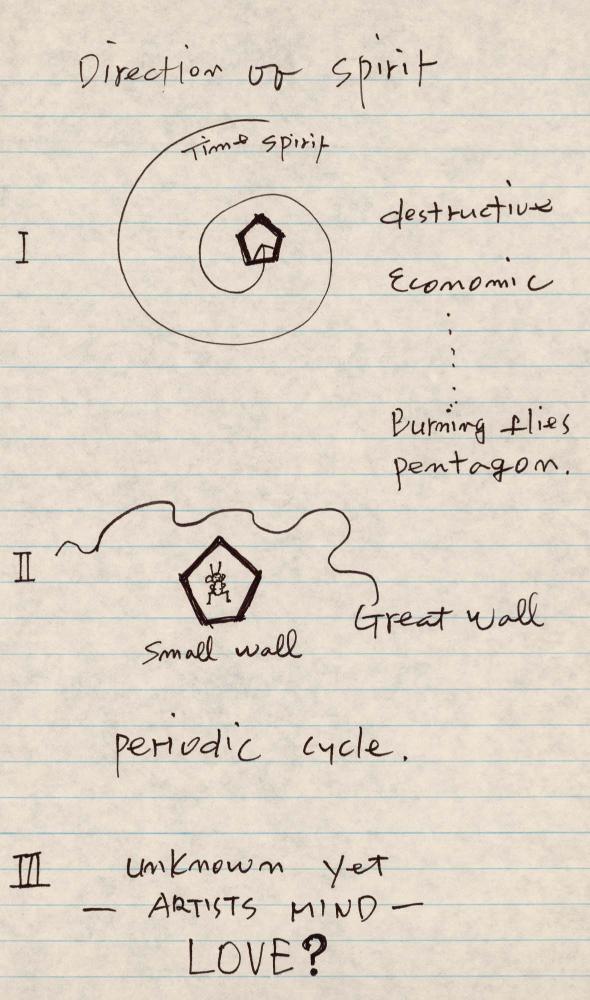 Direction of spirit
Time spirit
I
destructive
Economic
Burning flies
pentagon.
II
Great wall
Small wall
periodic cycle.
III
unknown yet
— ARTISTS MIND —
LOVE?